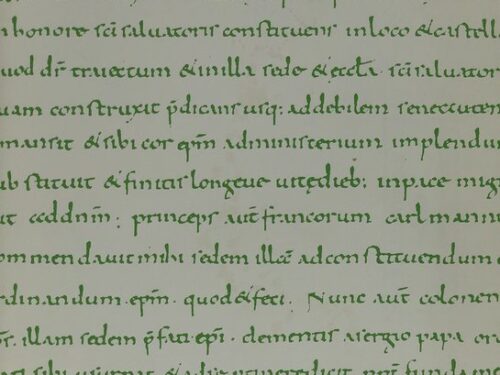 n honore sc̄i saluatoris constituens inloco & castell
uod dr̄ traiectum & inilla sede & eccła sc̄i saluator
uam construxit p̄dicans usq; addebilem senectutem
mansit & sibi cor ep̄m administerium implendum
ub stituit & finitis longeue uitędieb; inpace mig
it addn̄m; princeps aut̄ francorum carlmannu
ommendauit mihi sedem illā adconstituendum &
rdinandum ep̄m. quod & feci. Nunc aut̄ colonen
p̄s. illam sedem p̄fati ep̄i. clementis asergio papa or
ati sibi usurpat & adse pertinere dicit fundame